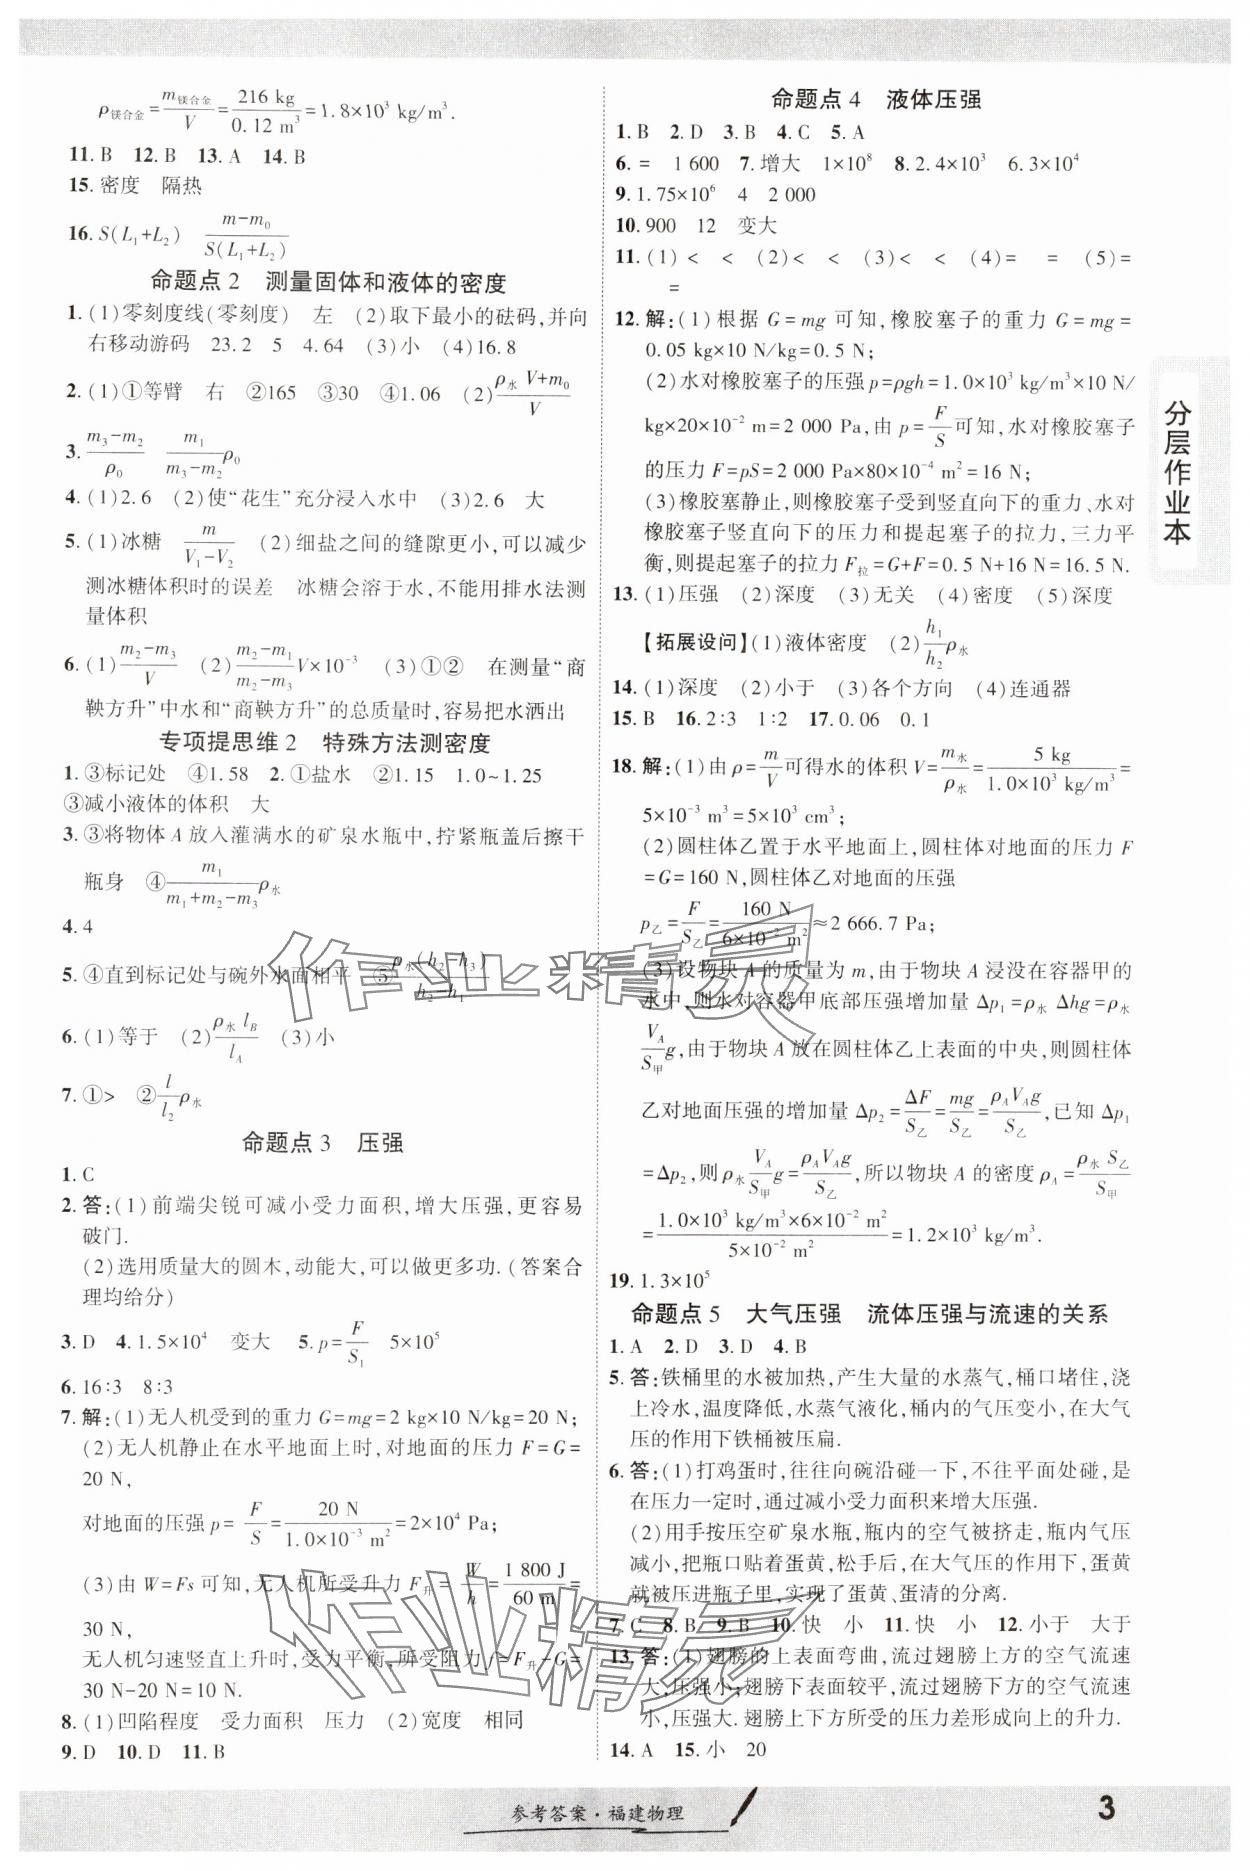 ρ镁合金=m镁合金/V=216 kg/0.12 m³=1.8×10³ kg/m³.
11. B 12. B 13. A 14. B
15. 密度 隔热
16. S(L₁+L₂) (m-m₀)/S(L₁+L₂)
命题点2 测量固体和液体的密度
1. (1)零刻度线(零刻度) 左 (2)取下最小的砝码,并向
右移动游码 23.2 5 4.64 (3)小 (4)16.8
2. (1)①等臂 右 ②165 ③30 ④1.06 (2)(ρ水V+m₀)/V
3. (m₃-m₂)/ρ₀ m₁/(m₃-m₂)ρ₀
4. (1)2.6 (2)使“花生”充分浸入水中 (3)2.6 大
5. (1)冰糖 m/(V₁-V₂) (2)细盐之间的缝隙更小,可以减少
测冰糖体积时的误差 冰糖会溶于水,不能用排水法测
量体积
6. (1)(m₂-m₃)/V (2)(m₂-m₁)/(m₂-m₃)V×10⁻³ (3)①② 在测量“商
鞅方升”中水和“商鞅方升”的总质量时,容易把水洒出
专项提思维2 特殊方法测密度
1. ③标记处 ④1.58 2. ①盐水 ②1.15 1.0~1.25
③减小液体的体积 大
3. ③将物体A放入灌满水的矿泉水瓶中,拧紧瓶盖后擦干
瓶身 ④m₁/(m₁+m₂-m₃)ρ水
4. 4
5. ④直到标记处与碗外水面相平 ⑤ρ水(h₂-h₃)/(h₂-h₁)
6. (1)等于 (2)ρ水l_B/l_A (3)小
7. ①> ②l/l₂ρ水
命题点3 压强
1. C
2. 答:(1)前端尖锐可减小受力面积,增大压强,更容易
破门.
(2)选用质量大的圆木,动能大,可以做更多功.(答案合
理均给分)
3. D 4. 1.5×10⁴ 变大 5. p=F/S₁ 5×10⁵
6. 16∶3 8∶3
7. 解:(1)无人机受到的重力G=mg=2 kg×10 N/kg=20 N;
(2)无人机静止在水平地面上时,对地面的压力F=G=
20 N,
对地面的压强p=F/S=20 N/1.0×10⁻³ m²=2×10⁴ Pa;
(3)由W=Fs可知,无人机所受升力F升=W/h=1 800 J/60 m=
30 N,
无人机匀速竖直上升时,受力平衡,所受阻力f=F升-G=
30 N-20 N=10 N.
8. (1)凹陷程度 受力面积 压力 (2)宽度 相同
9. D 10. D 11. B
命题点4 液体压强
1. B 2. D 3. B 4. C 5. A
6. = 1 600 7. 增大 1×10⁸ 8. 2.4×10³ 6.3×10⁴
9. 1.75×10⁶ 4 2 000
10. 900 12 变大
11. (1)< < (2)< < (3)< < (4)= = (5)=
=
12. 解:(1)根据G=mg可知,橡胶塞子的重力G=mg=
0.05 kg×10 N/kg=0.5 N;
(2)水对橡胶塞子的压强p=ρgh=1.0×10³ kg/m³×10 N/
kg×20×10⁻² m=2 000 Pa,由p=F/S可知,水对橡胶塞子
的压力F=pS=2 000 Pa×80×10⁻⁴ m²=16 N;
(3)橡胶塞静止,则橡胶塞子受到竖直向下的重力、水对
橡胶塞子竖直向下的压力和提起塞子的拉力,三力平
衡,则提起塞子的拉力F拉=G+F=0.5 N+16 N=16.5 N.
13. (1)压强 (2)深度 (3)无关 (4)密度 (5)深度
【拓展设问】(1)液体密度 (2)h₁/h₂ρ水
14. (1)深度 (2)小于 (3)各个方向 (4)连通器
15. B 16. 2∶3 1∶2 17. 0.06 0.1
18. 解:(1)由ρ=m/V可得水的体积V=m水/ρ水=5 kg/1.0×10³ kg/m³=
5×10⁻³ m³=5×10³ cm³;
(2)圆柱体乙置于水平地面上,圆柱体对地面的压力F
=G=160 N,圆柱体乙对地面的压强
p乙=F/S乙=160 N/6×10⁻² m²≈2 666.7 Pa;
(3)设物块A的质量为m,由于物块A浸没在容器甲的
水中,则水对容器甲底部压强增加量Δp₁=ρ水Δhg=ρ水
V_A/S甲g,由于物块A放在圆柱体乙上表面的中央,则圆柱体
乙对地面压强的增加量Δp₂=ΔF/S乙=mg/S乙=ρ_AV_Ag/S乙,已知Δp₁
=Δp₂,则ρ水V_A/S甲g=ρ_AV_Ag/S乙,所以物块A的密度ρ_A=ρ水S乙/S甲
=1.0×10³ kg/m³×6×10⁻² m²/5×10⁻² m²=1.2×10³ kg/m³.
19. 1.3×10⁵
命题点5 大气压强 流体压强与流速的关系
1. A 2. D 3. D 4. B
5. 答:铁桶里的水被加热,产生大量的水蒸气,桶口堵住,浇
上冷水,温度降低,水蒸气液化,桶内的气压变小,在大气
压的作用下铁桶被压扁.
6. 答:(1)打鸡蛋时,往往向碗沿碰一下,不往平面处碰,是
在压力一定时,通过减小受力面积来增大压强.
(2)用手按压空矿泉水瓶,瓶内的空气被挤走,瓶内气压
减小,把瓶口贴着蛋黄,松手后,在大气压的作用下,蛋黄
就被压进瓶子里,实现了蛋黄、蛋清的分离.
7. C 8. B 9. B 10. 快 小 11. 快 小 12. 小于 大于
13. 答:(1)翅膀的上表面弯曲,流过翅膀上方的空气流速
大,压强小;翅膀下表面较平,流过翅膀下方的空气流速
小,压强大.翅膀上下方所受的压力差形成向上的升力.
14. A 15. 小 20
分层作业本
作业精灵
作业精灵
参考答案·福建物理
3